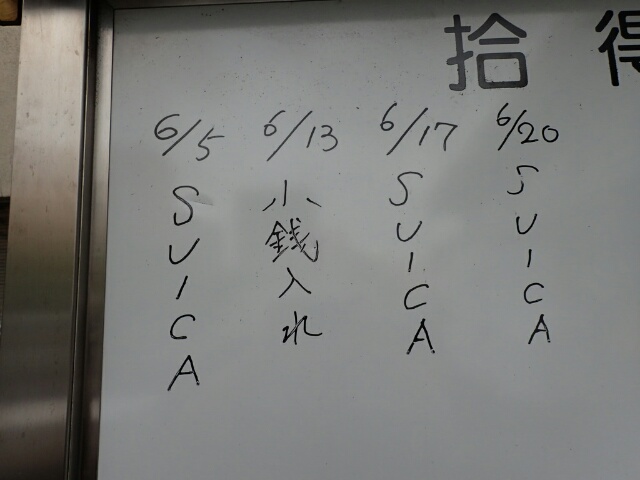 拾得
6/5
SUICA
6/13
小銭入れ
6/17
SUICA
6/20
SUICA